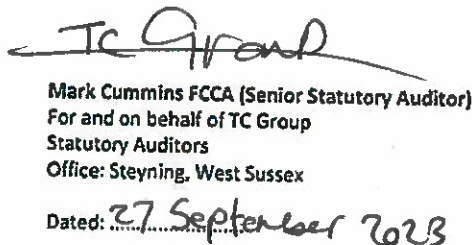 TC Group
Mark Cummins FCCA (Senior Statutory Auditor)
For and on behalf of TC Group
Statutory Auditors
Office: Steyning, West Sussex
Dated: 27 September 2023